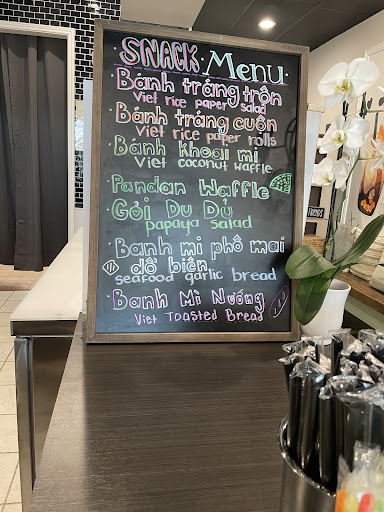 SNACK Menu
Bánh tráng trộn
Viet rice paper salad
Bánh tráng cuôn
Viet rice paper rolls
Bánh khoai mì
Viet coconut waffle
Pandan Waffle
Gỏi Du Dủ
papaya salad
Banh mi phô mai
đồ biển
seafood garlic bread
Banh Mì Nướng
Viet Toasted Bread